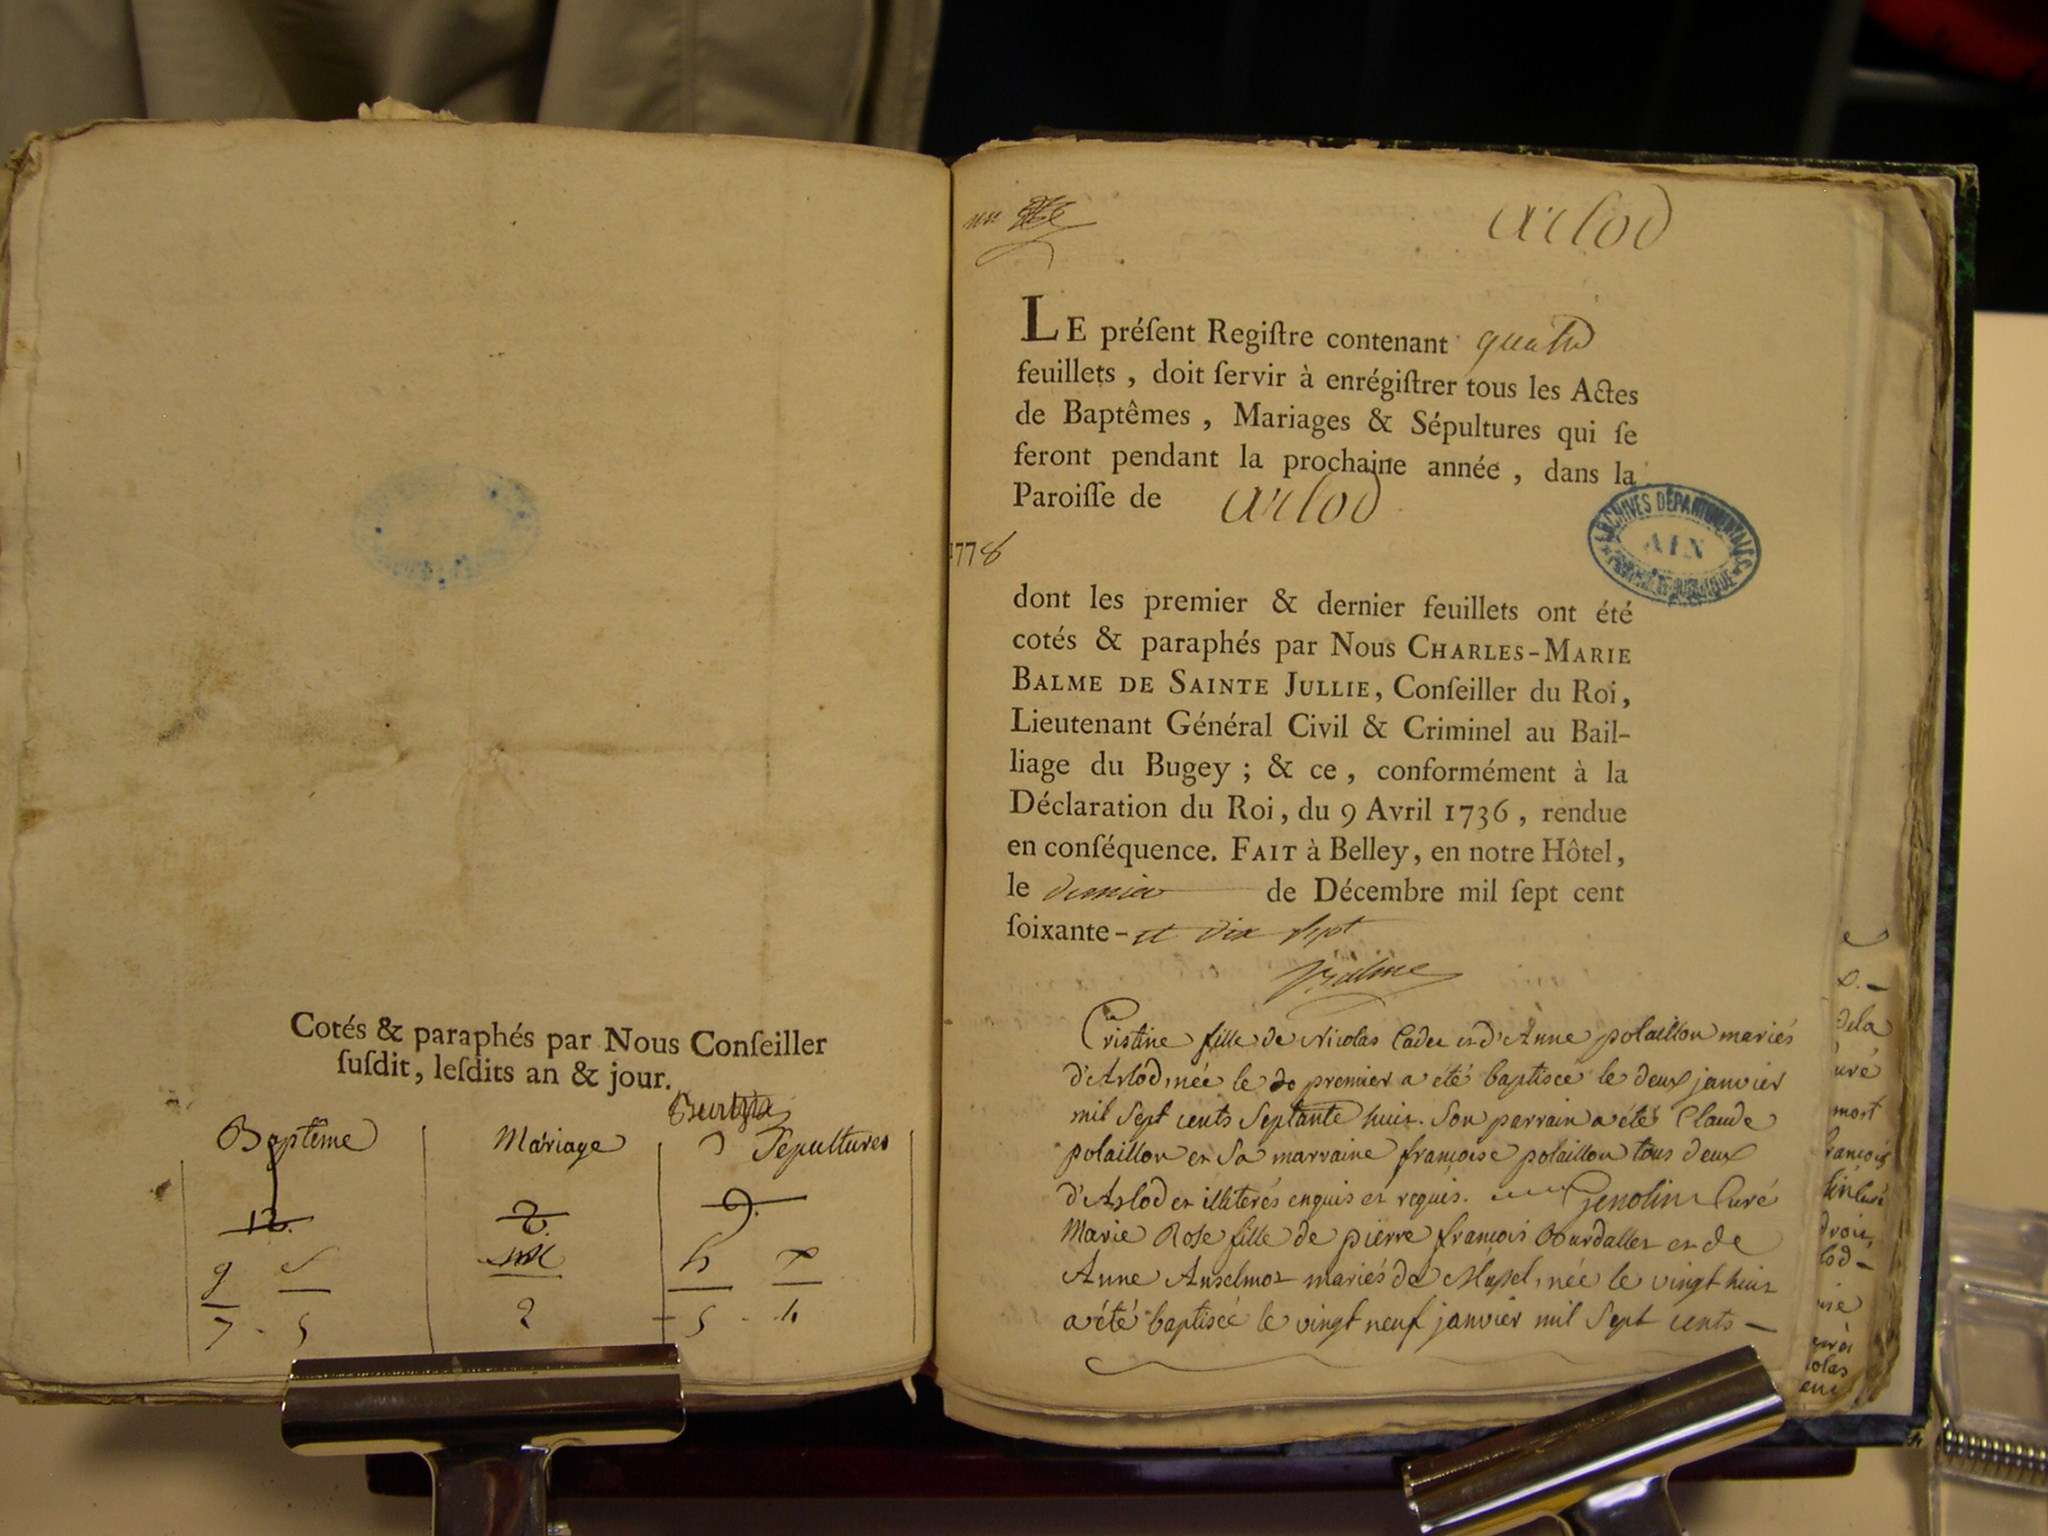 Cotés & paraphés par Nous Conſeiller
ſuſdit, leſdits an & jour.
Baptême Mariage Sépultures
12. 2. 9.
2
arlod
LE préſent Regiſtre contenant quatre
feuillets, doit ſervir à enrégiſtrer tous les Actes
de Baptêmes, Mariages & Sépultures qui ſe
feront pendant la prochaine année, dans la
Paroiſſe de arlod
ARCHIVES DÉPARTEMENTALES
AIN
1778
dont les premier & dernier feuillets ont été
cotés & paraphés par Nous CHARLES-MARIE
BALME DE SAINTE JULLIE, Conſeiller du Roi,
Lieutenant Général Civil & Criminel au Bail-
liage du Bugey; & ce, conformément à la
Déclaration du Roi, du 9 Avril 1736, rendue
en conſéquence. FAIT à Belley, en notre Hôtel,
le dernier de Décembre mil ſept cent
ſoixante-et dix sept
Balme
Cristine fille de Nicolas Cadet et d'Anne polaillon mariés
d'Arlod, née le premier a eté baptisée le deux janvier
mil sept cents septante huit. Son parrain a été Claude
polaillon et Sa marraine francoise polaillon tous deux
d'Arlod et illiterés enquis et requis. Genolin Curé
Marie Rose fille de pierre francois Bourdallet et de
Anne Anselmoz mariés de Musel, née le vingt huit
a été baptisée le vingt neuf janvier mil Sept cents